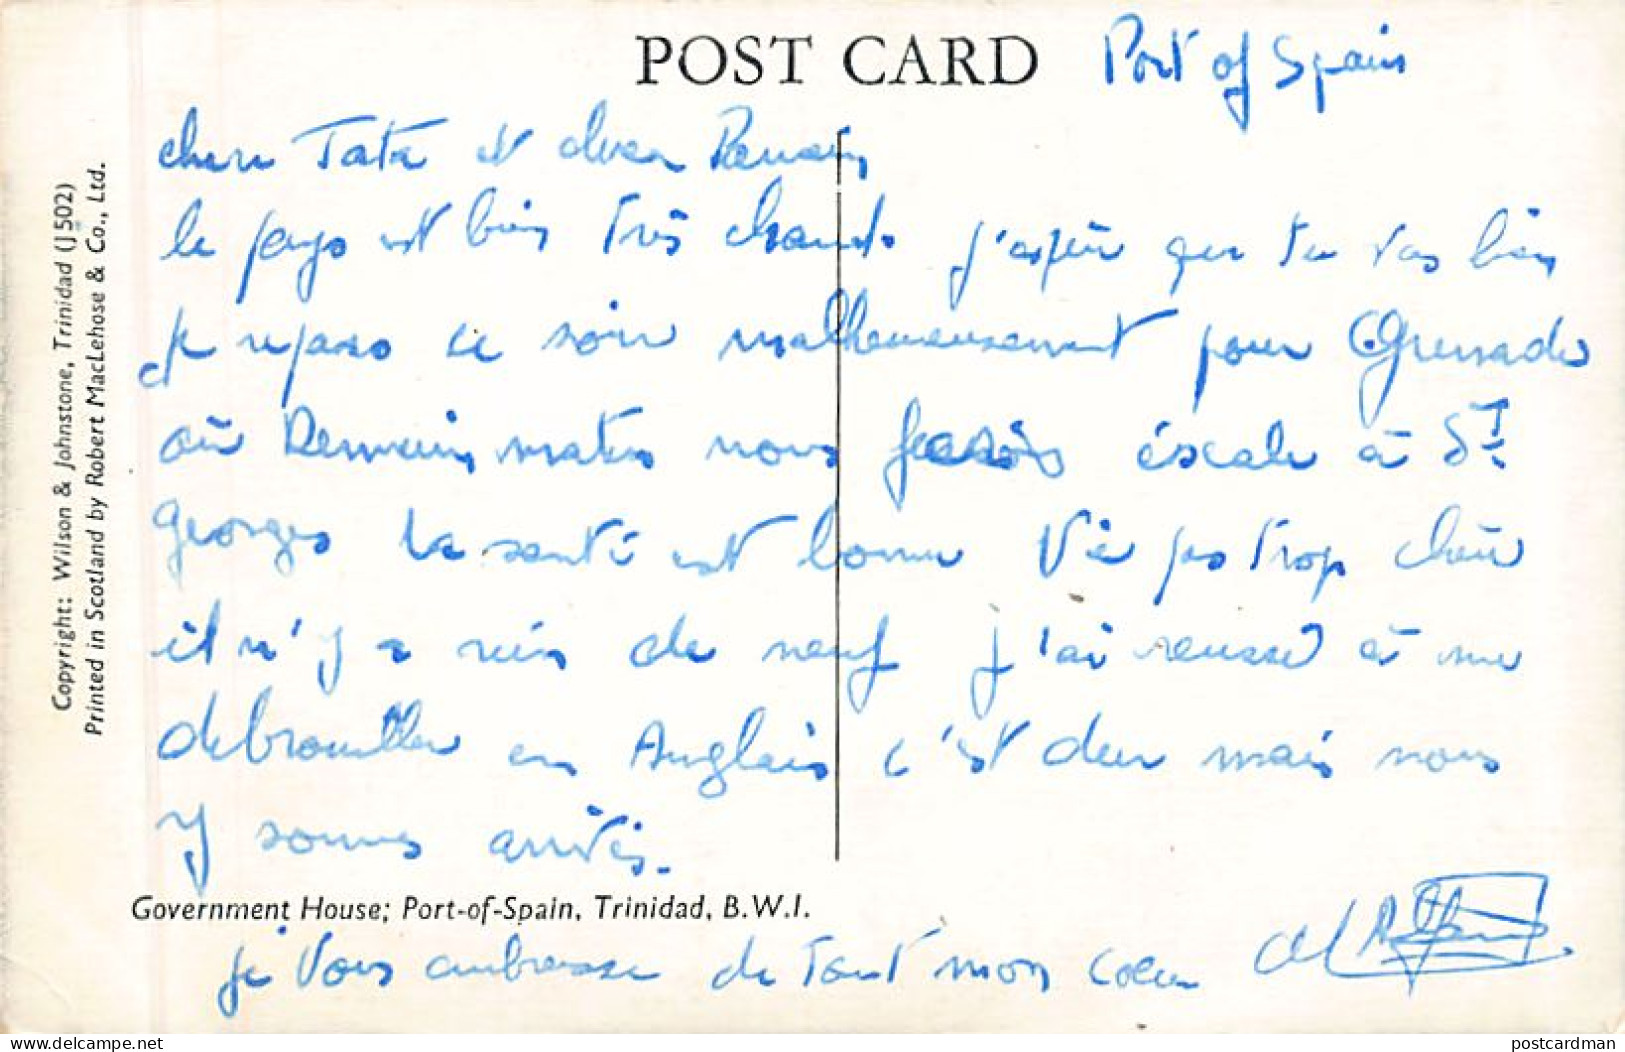 POST CARD
Port of Spain
chere Tata et cher
le pays est bien très chaud. j'espère que tu vas bien
Je repars ce soir malheureusement pour Grenade
où Demain matin nous faisons éscale à St.
georges la santé est bonne Vie pas trop chère
il n'y a rien de neuf j'ai reussi à me
debrouiller en Anglais c'est dur mais nous
y sommes arrivés.
Government House; Port-of-Spain, Trinidad, B.W.I.
je Vous embrasse de Tout mon coeur
Copyright: Wilson & Johnstone, Trinidad (J502)
Printed in Scotland by Robert MacLehose & Co., Ltd.
delcampe.net
postcardman